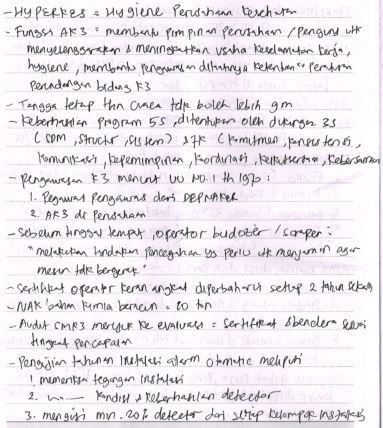 - HYPERKES = Hygiene Perusahaan Kesehatan
- Fungsi AK3 = membantu pimpinan perusahaan / pengurus utk
menyelenggarakan & meningkatkan usaha keselamatan kerja,
hygiene, membantu pengawasan ditaatinya ketentuan" peraturan
perundangan bidang K3
- Tangga tetap thn cuaca tdk boleh lebih 9m
- Keberhasilan program 5S, ditentukan oleh dukungan 3S
(SDM, Struktr, Sistem) & 7K (Komitmen, konsistensi,
komunikasi, kepemimpinan, koordinasi,
- Pengawasan K3 menurut UU No. 1 th 1970:
1. Pegawai pengawas dari DEPNAKER
2. AK3 di Perusahaan
- Sebelum tinggal tempat, operator / scraper:
"melakukan tindakan pencegahan yg perlu utk menjamin agar
mesin tdk bergerak"
- Sertifikat operator keran angkat diperbaharui setiap 2 tahun sekali
- NAK bahan kimia = 20 ton
- Audit SMK3 merujuk ke evaluasi = Sertifikat & bendera sesuai
tingkat pencapaian
- Pengujian tahunan instalasi alarm otomatic meliputi
1. memeriksa tegangan instalasi
2. kondisi & keberhasilan detector
3. menguji min. 20% detector dari setiap kelompok instalasi